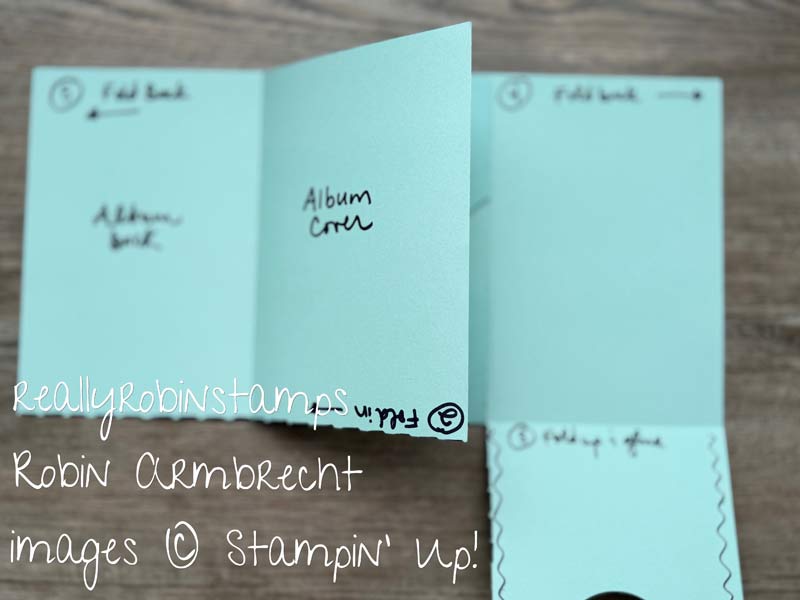 Fold Back
Album
back
Album
Cover
④ Fold back
② Fold in
③ Fold up & glue
ReallyRobinStamps
Robin Armbrecht
images © Stampin' Up!